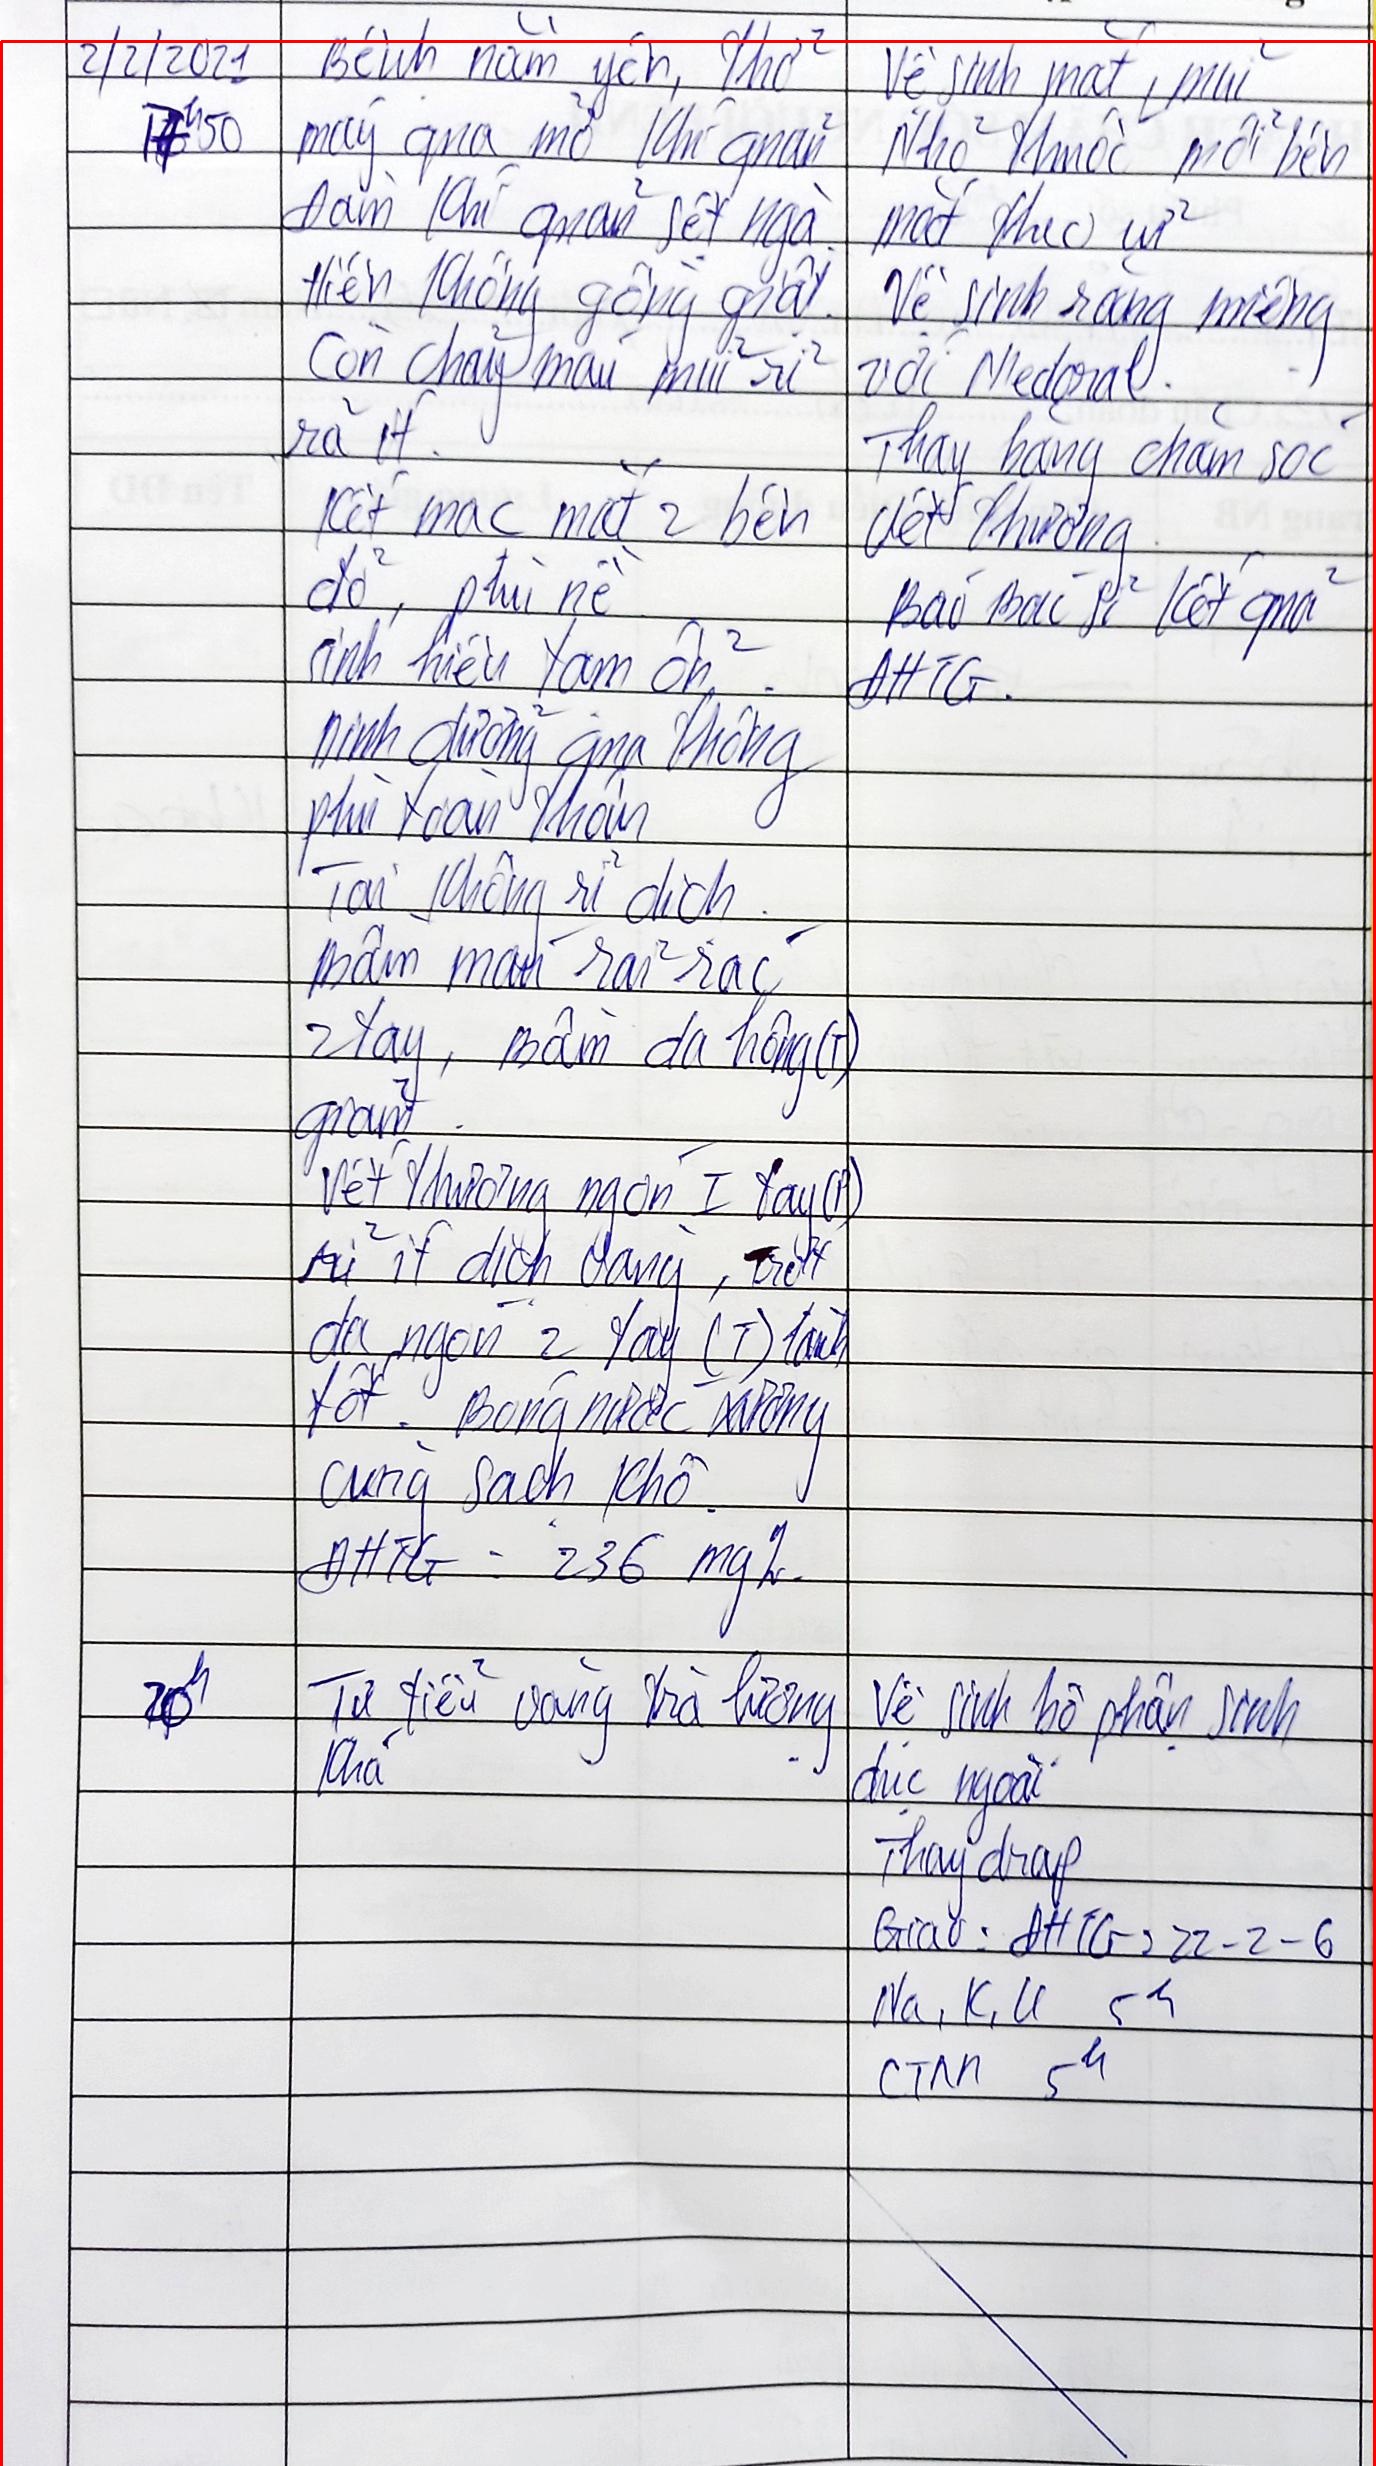 2/2/2021
17h50
Bệnh nằm yên, thở
máy qua mở khí quản
Đàm khí quản sệt ngà.
Hiện không gồng giật.
Còn chảy máu mũi rỉ
rả ít.
Kết mạc mắt 2 bên
đỏ, phù nề.
sinh hiệu tạm ổn.
Dinh dưỡng qua thông
phù toàn thân
Tai không rỉ dịch.
Bầm máu rải rác
2 tay, Bầm da hông (T)
giảm.
Vết thương ngón I tay (P)
rỉ ít dịch vàng, trợt
da ngón 2 tay (T) lành
tốt. Bóng nước xương
cùng sạch khô.
ĐHTG = 236 mg%.
Vệ sinh mắt, mũi
Nhỏ thuốc mỗi bên
mắt theo
Vệ sinh răng miệng
với Medoral.
Thay băng chăm sóc
vết thương
Báo Bác sĩ kết quả
ĐHTG.
20h
Tự tiểu vàng trà lượng
khá
Vệ sinh bộ phận sinh
dục ngoài
Thay drap
Giao: ĐHTG: 22-2-6
Na, K, Cl 5h
CTM 5h